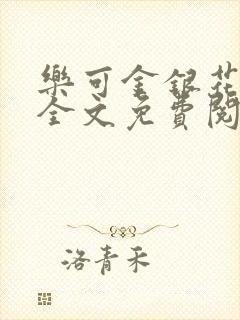 樂可金銀花
全文免費閱
洛青禾